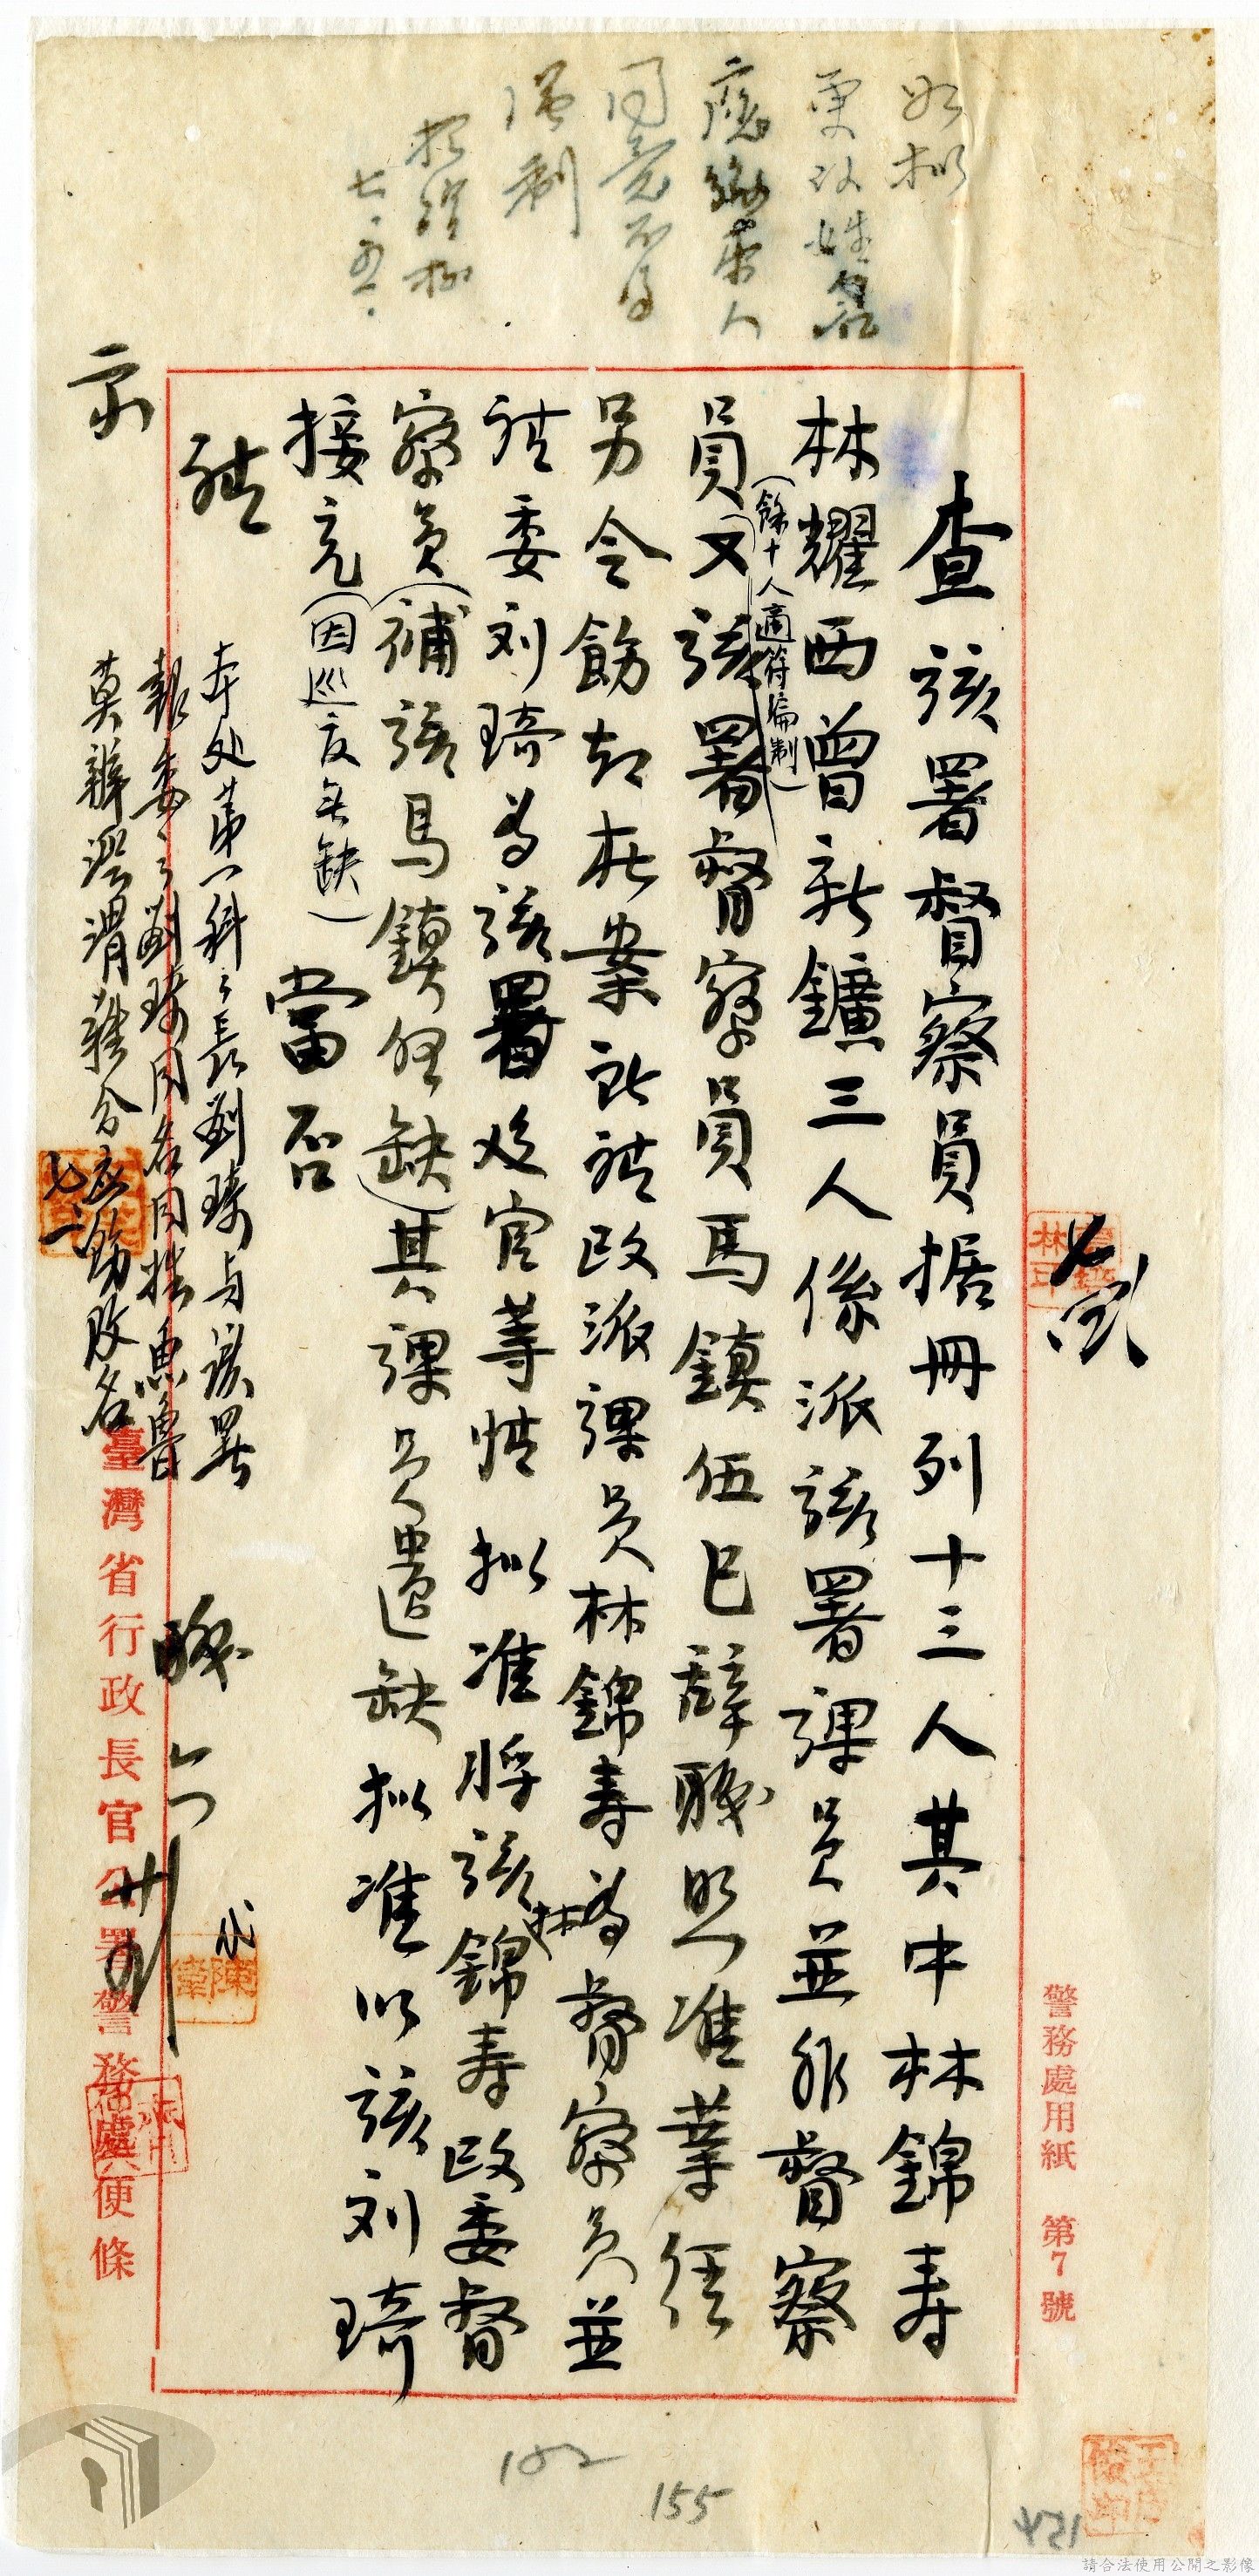 如擬
更改姓名
應徵本人
同意不得
強制
七.五.
警務處用紙 第7號
查該署督察員据冊列十三人其中林錦寿
林耀西曾新鑛三人係派該署課員並非督察
員(餘十人適符編制)又該署督察員馬鎮伍已辭职照准業經
另令飭知在案玆請改派課員林錦寿為督察員並
請委刘琦為該署巡官等情 拟准將該林錦寿改委督
察員(補該馬鎮伍缺)其課員遺缺拟准以該刘琦
接充(因巡官無缺) 當否
請
示
职
代
本处第一科科長劉琦与該署
報委之劉琦同名同姓魚魯
莫辨涇渭難分应飭改名
七.二
臺灣省行政長官公署警務處便條
102
155
154
請合法使用公開之影像